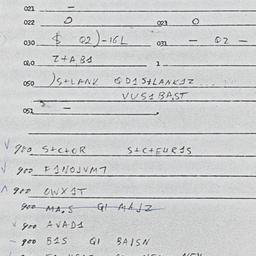 021 -
022 0 023 0
030 $ 02)-16L 031 - 02 -
040 Z+AB1 1
050 )S+LANV QD1S+LANK1Z
VUS1BA,ST
052 -
√ 900 S+C+OR S+C+EUR1S
√ 900 F1NOJVM7
^ 900 OWX1T
900 MA,S Q1 AAJZ
√ 900 AVAD1
- 900 B1S Q1 BA1SN